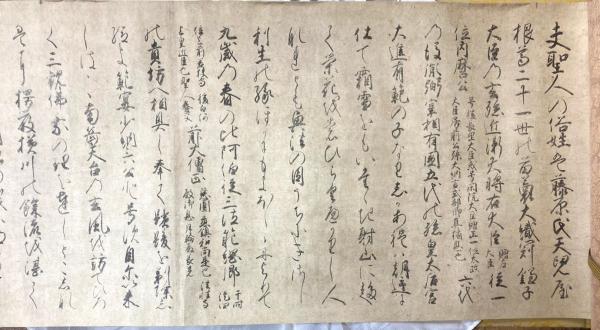 夫聖人の俗姓は藤原氏天児屋
根尊二十一世の苗裔大織冠鎌子
大臣の玄孫近衛大将右大臣 贈左大臣 従一
位内麿公 号後長岡大臣或号閑院大臣贈正一位太政大臣房前公孫大納言式部卿真楯息也 六代
の後胤弼宰相有国五代の孫皇太后宮
大進有範の子なりしかあれは朝廷に
仕て霜雪をもいたゝき射山に趨
て栄花をもひらくへかりし人
なれとも興法の因うちにきさし
利生の縁ほかにもよほしによりて
九歳の春の比阿伯従三位範綱卿 于時従四
位上前若狭守後白河上皇近臣也聖人養父 前大僧正 慈円慈鎮和尚是也法性寺殿御息月輪殿長兄
の貴坊へ相具し奉て鬢髪を剃除し
給き範宴少納言公と号す自尓以来
しは〱南岳天台の玄風を訪てひろ
く三観仏乗の理を達しとこしな
楞厳横川の余流を湛て